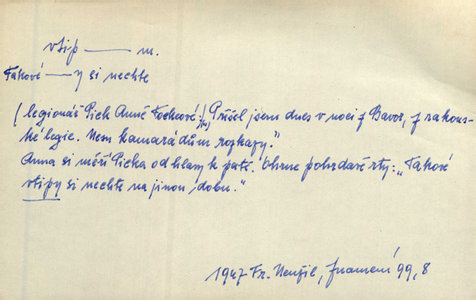 vtip —— m.
Takové — y si nechte
(legionář Pick Anně Fockeové:) „Přišel jsem dnes v noci z Bavor, z rakous-
ké legie. Nesu kamarádům rozkazy."
Anna si měří Picka od hlavy k patě. Ohrne pohrdavě rty: „Takové
vtipy si nechte na jinou dobu."
1947 Fr. Neužil, znamení 99, 8